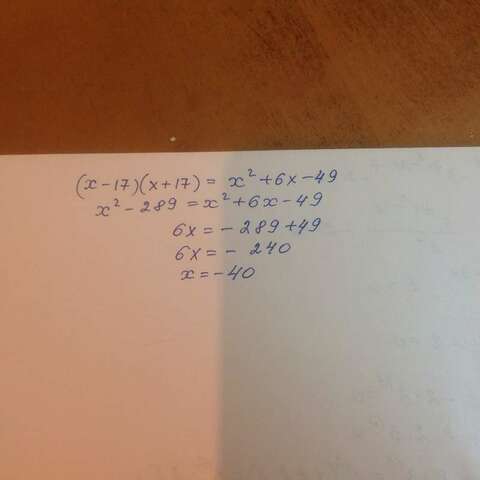 (x-17)(x+17) = x² + 6x - 49
x² - 289 = x² + 6x - 49
6x = - 289 + 49
6x = - 240
x = - 40